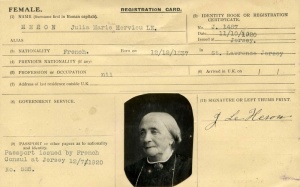 FEMALE.
REGISTRATION CARD.
(1) NAME (Surname first in Roman capitals).
HERON Julie Marie Hervieu LE.
ALIAS
(2) NATIONALITY French. Born on in St. Lawrence Jersey
(3) PREVIOUS NATIONALITY (if any)
(4) PROFESSION or OCCUPATION nil
(5) Address of last residence outside U.K.
(6) Arrived in U.K. on
(7) GOVERNMENT SERVICE.
(8) PASSPORT or other papers as to nationality and identity.
Passport issued by French
Consul at Jersey 10/7/1920
IDENTITY BOOK or REGISTRATION CERTIFICATE.
Issued at Jersey.
(9) SIGNATURE OR LEFT THUMB PRINT.
J Le Heron